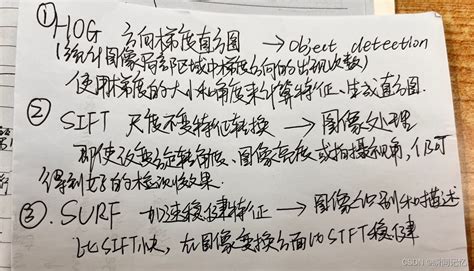 ① HOG 方向梯度直方图 → object detection
(统计图像局部区域中梯度方向的出现次数)
使用梯度的大小和角度来计算特征、生成直方图.
② SIFT 尺度不变特征转换 → 图像处理
即使改变旋转角度、图像亮度或拍摄视角,仍可
得到好的检测效果.
③.SURF 加速稳健特征 → 图像识别和描述
比SIFT快,在图像变换方面比SIFT稳健
CSDN @瞬间记忆